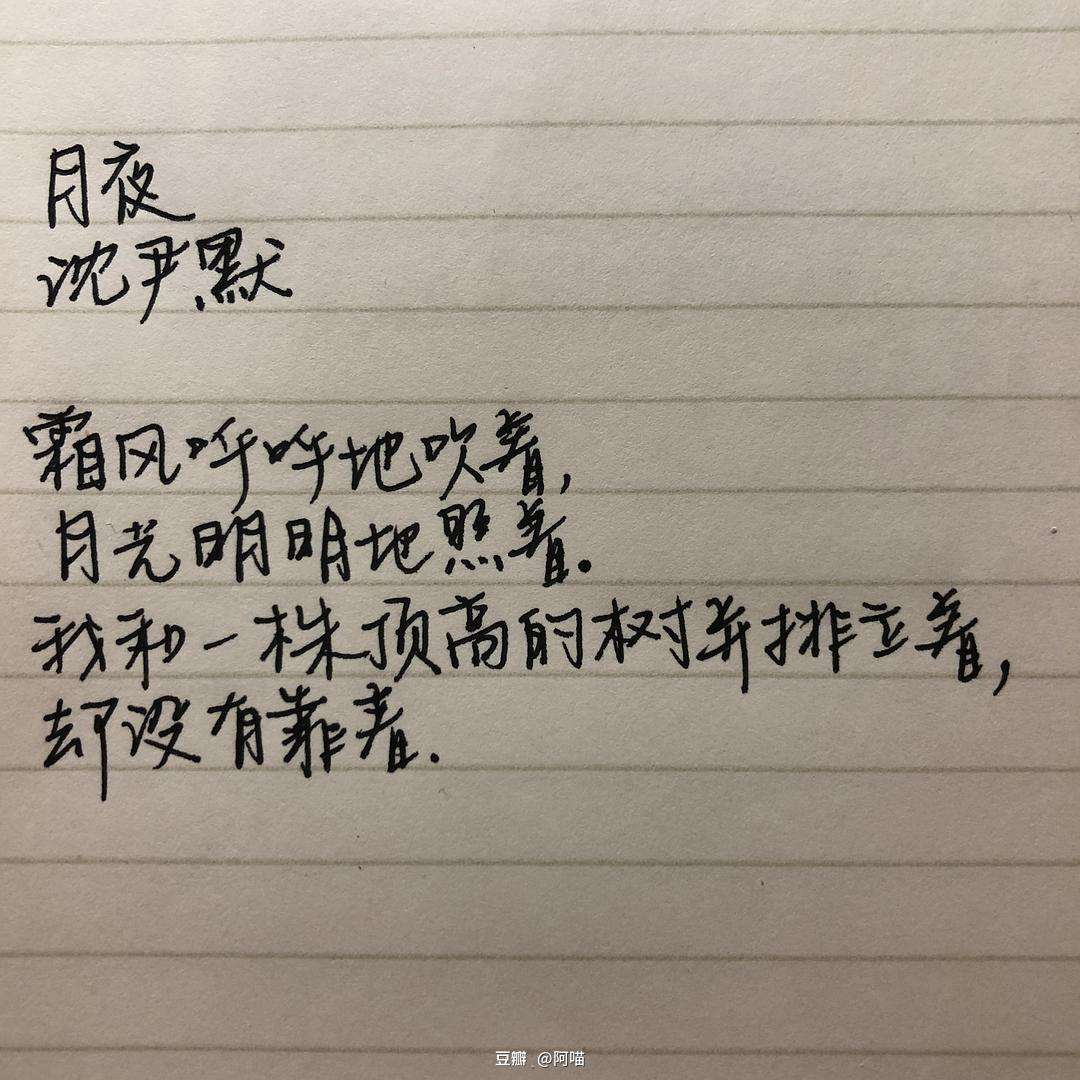 月夜
沈尹默
霜风呼呼地吹着,
月光明明地照着.
我和一株顶高的树并排立着,
却没有靠着.
豆瓣 @阿喵